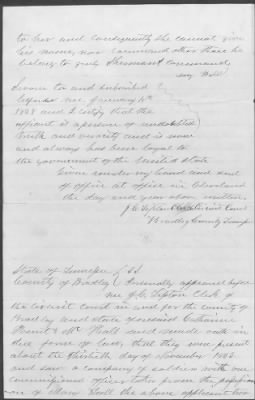 to her and consequently she cannot give
his name, nor command other than he
belong to Genl Shermans command
Sworn to and subscribed
before me January 10th
1878 and I certify that the
affiant is a person of undoubted
truth and veracity and is now
and always has been loyal to
the government of the United State
Given under my hand and seal
of office at office in Cleveland
the day and year above written
J. H. Tipton Clk Circuit Court
Bradley County Tennessee
State of Tennessee SS
County of Bradley Personally appeared before
me J. H. Tipton Clerk of
the circuit Court in and for the county of
Bradley and state aforesaid Catharine
and made oath in
due form of law, that they were present
about the thirtieth day of November 1863
and saw a company of soldiers with one
commissioned officer take from the possession
of Mary the above applicant